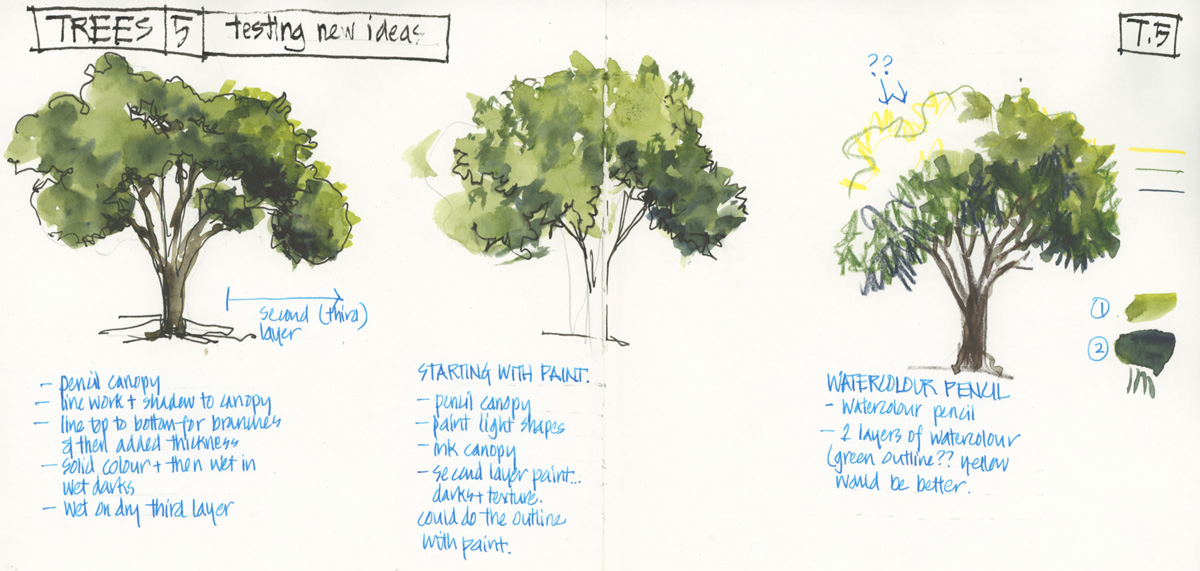 TREES 5 testing new ideas
T.5
??
second (third)
layer
- pencil canopy
- line work + shadow to canopy
- line top to bottom for branches
& then added thickness
- solid colour + then wet in
wet darks
- wet on dry third layer
STARTING WITH PAINT.
- pencil canopy
- paint light shapes
- ink canopy
- second layer paint...
darks + texture.
could do the outline
with paint.
1
2
WATERCOLOUR PENCIL
- watercolour pencil
- 2 layers of watercolour
(green outline?? yellow
would be better.